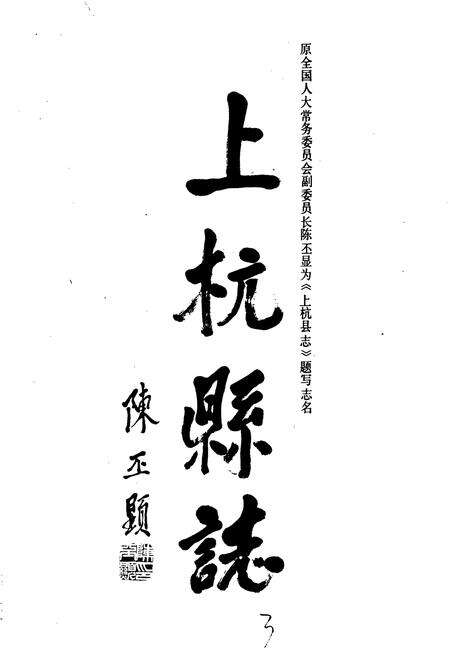 原全国人大常务委员会副委员长陈丕显为《上杭县志》题写志名
上杭縣誌
陳丕顯
3